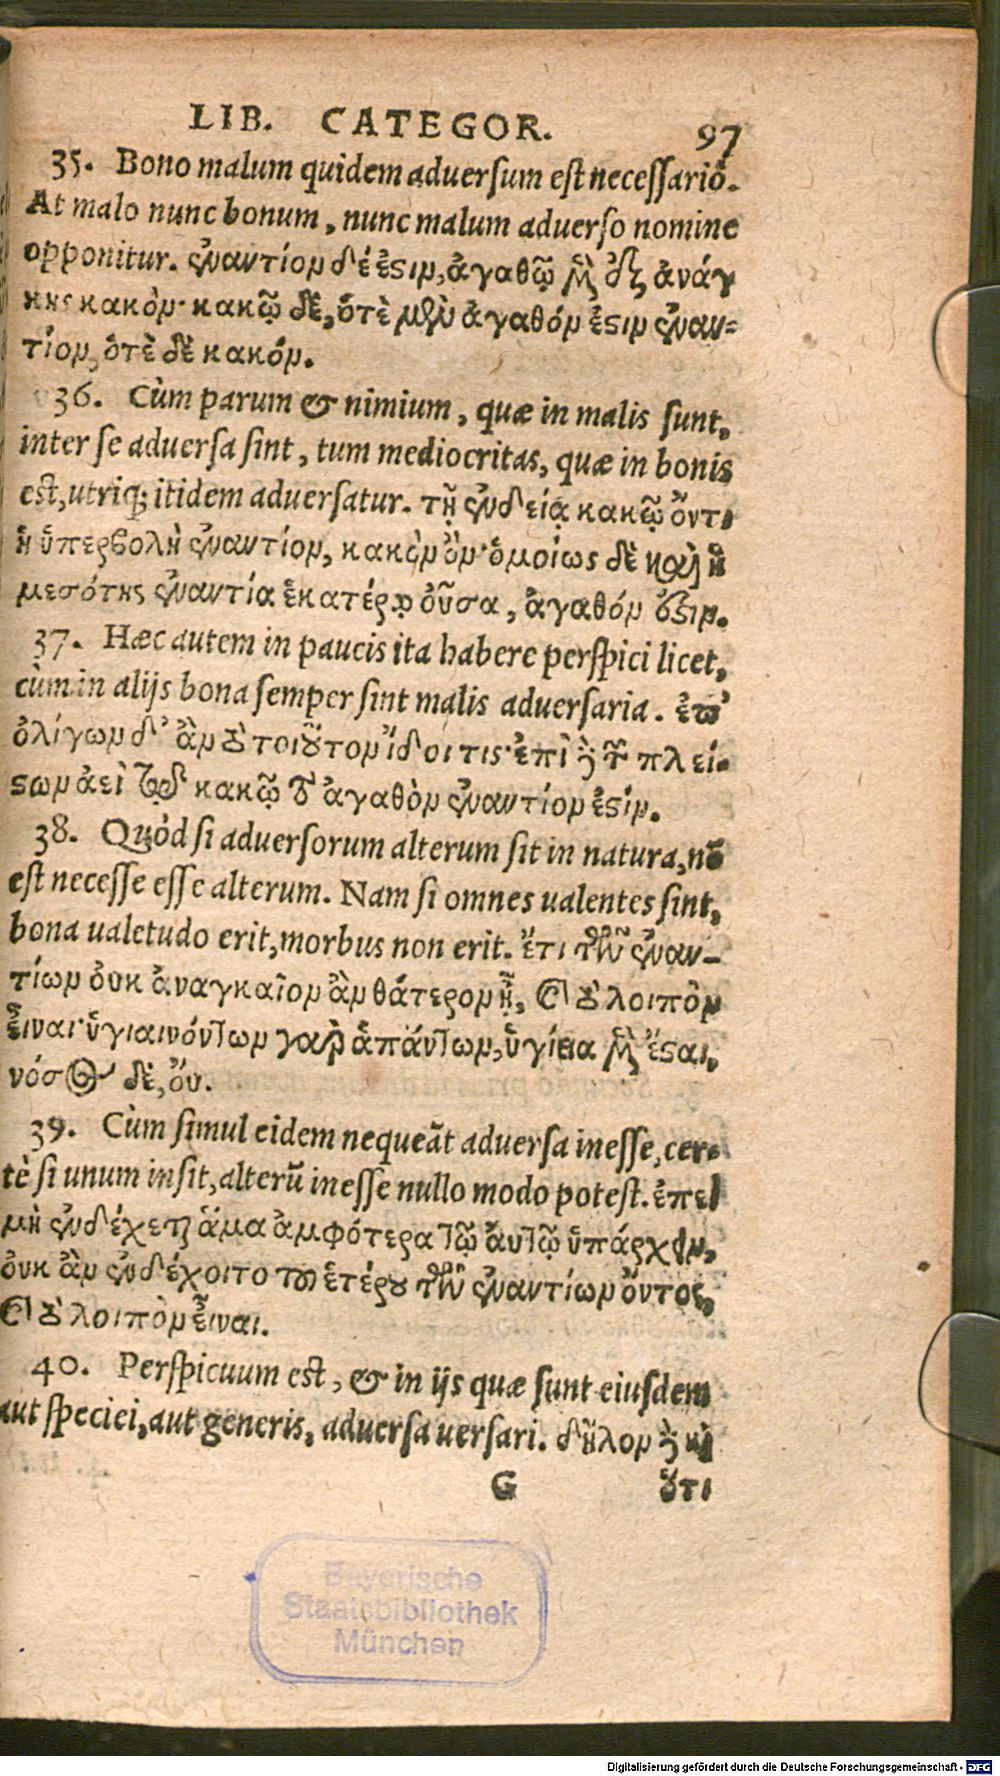 LIB. CATEGOR. 97
35. Bono malum quidem aduersum est necessariò.
At malo nunc bonum, nunc malum aduerso nomine
opponitur. ἐναντίον δέ ἐστιν, ἀγαθῷ μὲν ἐξ ἀνάγ
κης κακόν· κακῷ δὲ, ὁτὲ μὲν ἀγαθόν ἐστιν ἐναν-
τίον, ὁτὲ δὲ κακόν.
36. Cùm parum & nimium, quæ in malis sunt,
inter se aduersa sint, tum mediocritas, quæ in bonis
est, utriq; itidem aduersatur. τῇ ἐνδείᾳ κακῷ ὄντι
ἡ ὑπερβολὴ ἐναντίον, κακὸν ὄν· ὁμοίως δὲ καὶ ἡ
μεσότης ἐναντία ἑκατέρῳ οὖσα, ἀγαθόν ἐστιν.
37. Hæc autem in paucis ita habere perspici licet,
cùm in alijs bona semper sint malis aduersaria. ἐπ'
ὀλίγων δ' ἂν τὸ τοιοῦτον ἴδοι τις· ἐπὶ δὲ τῶν πλεί-
στων ἀεὶ τῷ κακῷ τὸ ἀγαθὸν ἐναντίον ἐστίν.
38. Quòd si aduersorum alterum sit in natura, nō
est necesse esse alterum. Nam si omnes ualentes sint,
bona ualetudo erit, morbus non erit. ἔτι τῶν ἐναν-
τίων οὐκ ἀναγκαῖον ἂν θάτερον ᾖ, καὶ τὸ λοιπὸν
εἶναι· ὑγιαινόντων γὰρ ἁπάντων, ὑγίεια μὲν ἔσται,
νόσος δὲ, οὔ.
39. Cùm simul eidem nequeāt aduersa inesse, cer-
tè si unum insit, alterū inesse nullo modo potest. ἐπεὶ
μὴ ἐνδέχεται ἅμα ἀμφότερα τῷ αὐτῷ ὑπάρχειν,
οὐκ ἂν ἐνδέχοιτο τοῦ ἑτέρου τῶν ἐναντίων ὄντος,
καὶ τὸ λοιπὸν εἶναι.
40. Perspicuum est, & in ijs quæ sunt eiusdem
aut speciei, aut generis, aduersa uersari. δῆλον δὲ καὶ
G ὅτι
Bayerische
Staatsbibliothek
München
Digitalisierung gefördert durch die Deutsche Forschungsgemeinschaft - DFG